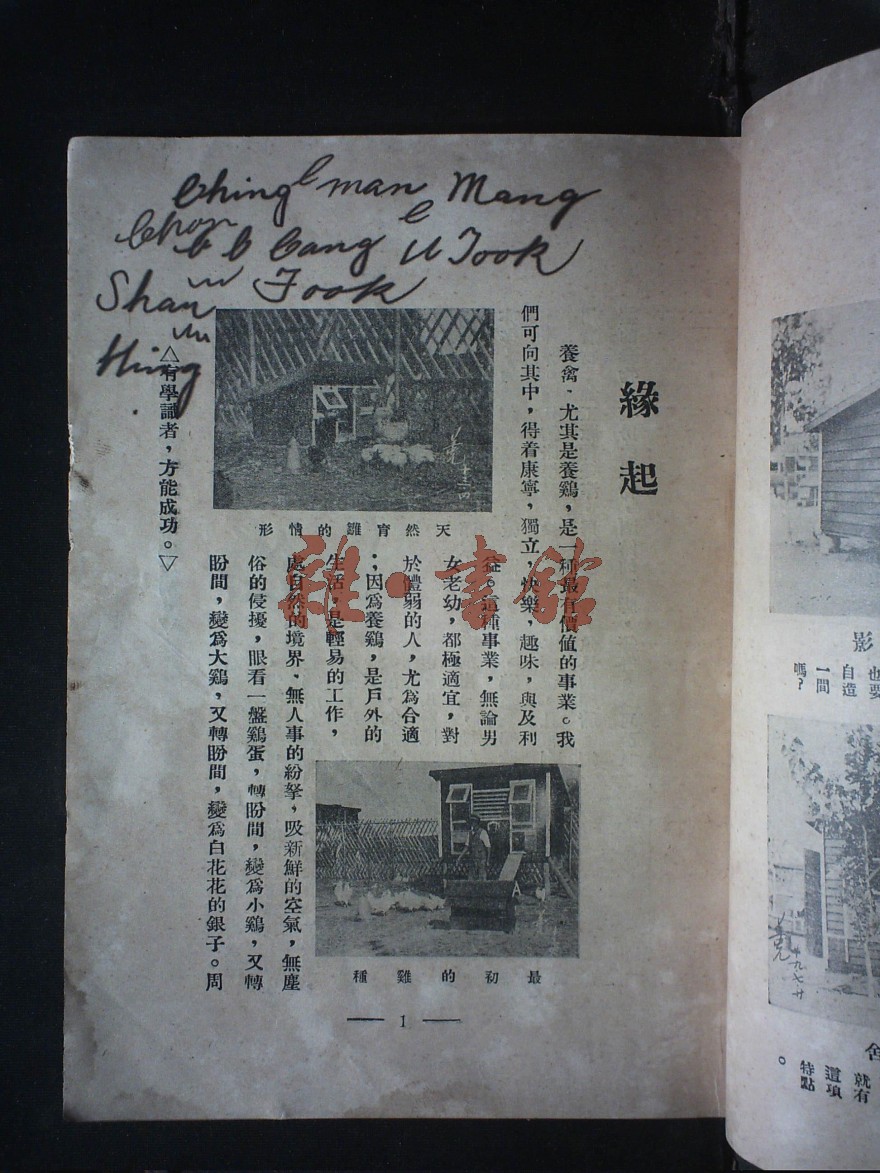 Ching man Mang
Chon
Cang U Took
Shan Fook
Hing
緣起
養禽,尤其是養鷄,是一種最有價值的事業。我
們可向其中,得着康寧,獨立,快樂,趣味,與及利
益。這種事業,無論男
女老幼,都極適宜,對
於體弱的人,尤為合適
;因為養鷄,是戶外的
生活,是輕易的工作,
處自然的境界,無人事的紛拏,吸新鮮的空氣,無塵
俗的侵擾,眼看一盤鷄蛋,轉盼間,變為小鷄,又轉
盼間,變為大鷄,又轉盼間,變為白花花的銀子。周
△有學識者,方能成功。▽
天然育雛的情形
最初的雞種
— 1 —
雜·書館
影
也要
自造
一間
嗎?
舍
就有
這項
特點
。